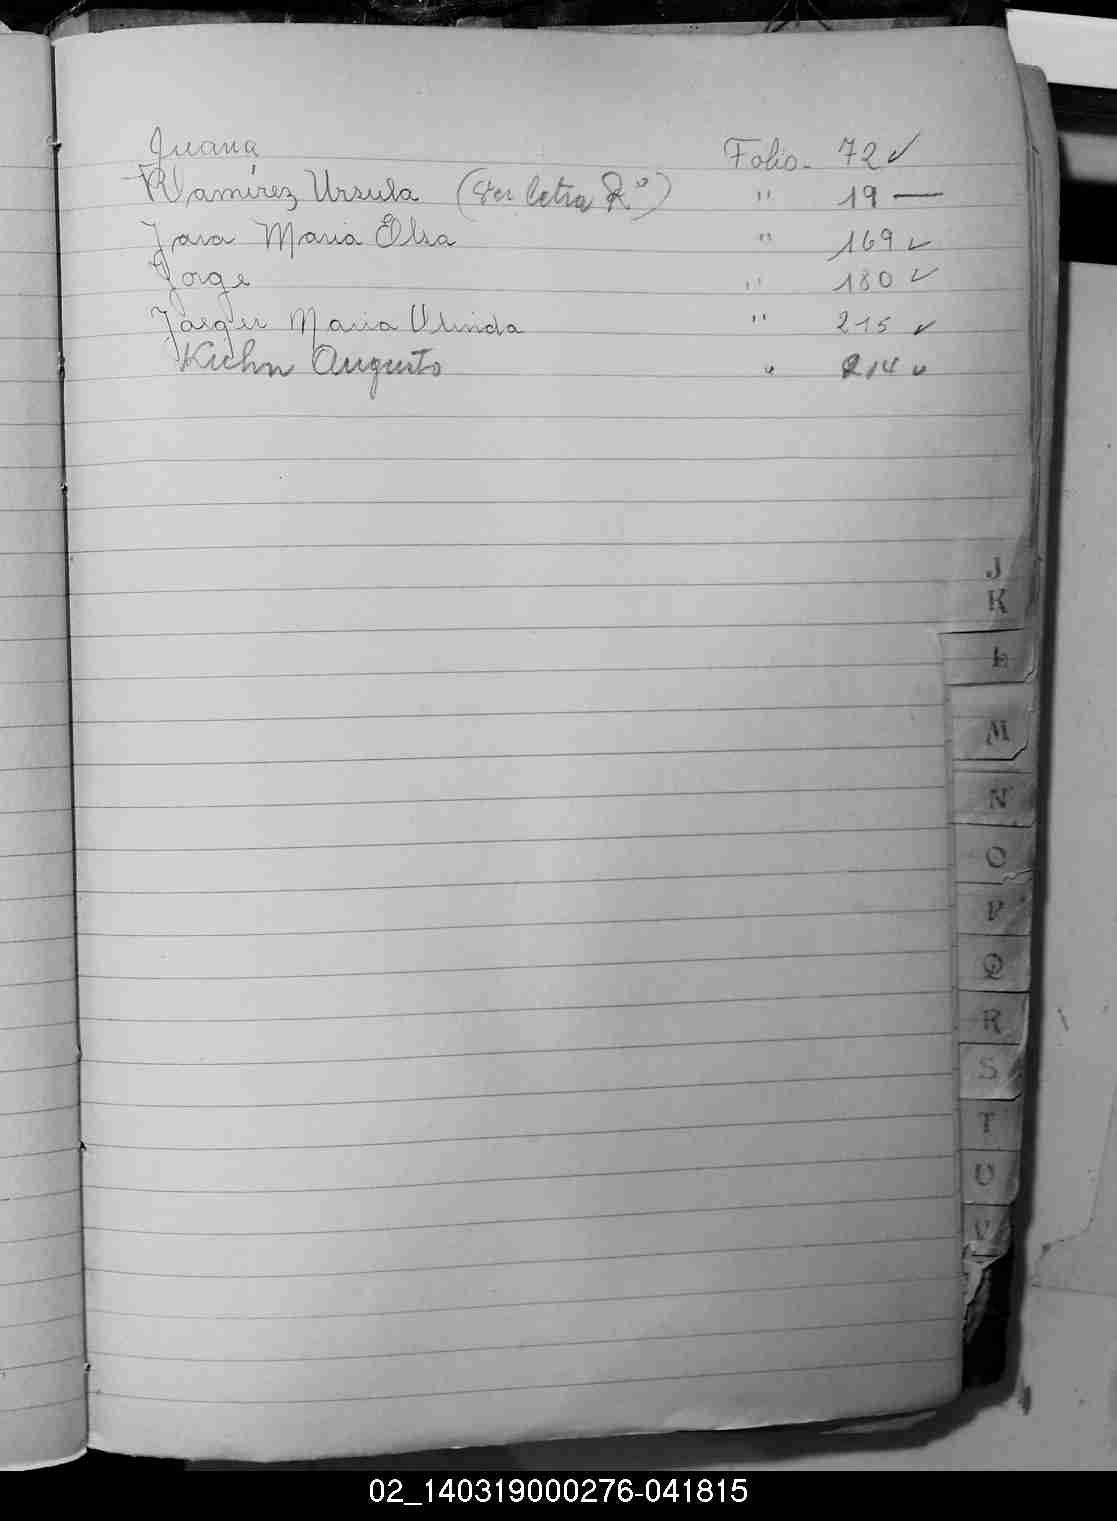 Juana Folio- 72 ✓
Ramírez Ursula (Ver letra R°) " 19 —
Jara Maria Elsa " 169 ✓
Jorge " 180 ✓
Jaeger Maria " 215 ✓
Kuhn Augusto " 214 ✓
J
K
L
M
N
O
P
Q
R
S
T
U
V
02_140319000276-041815